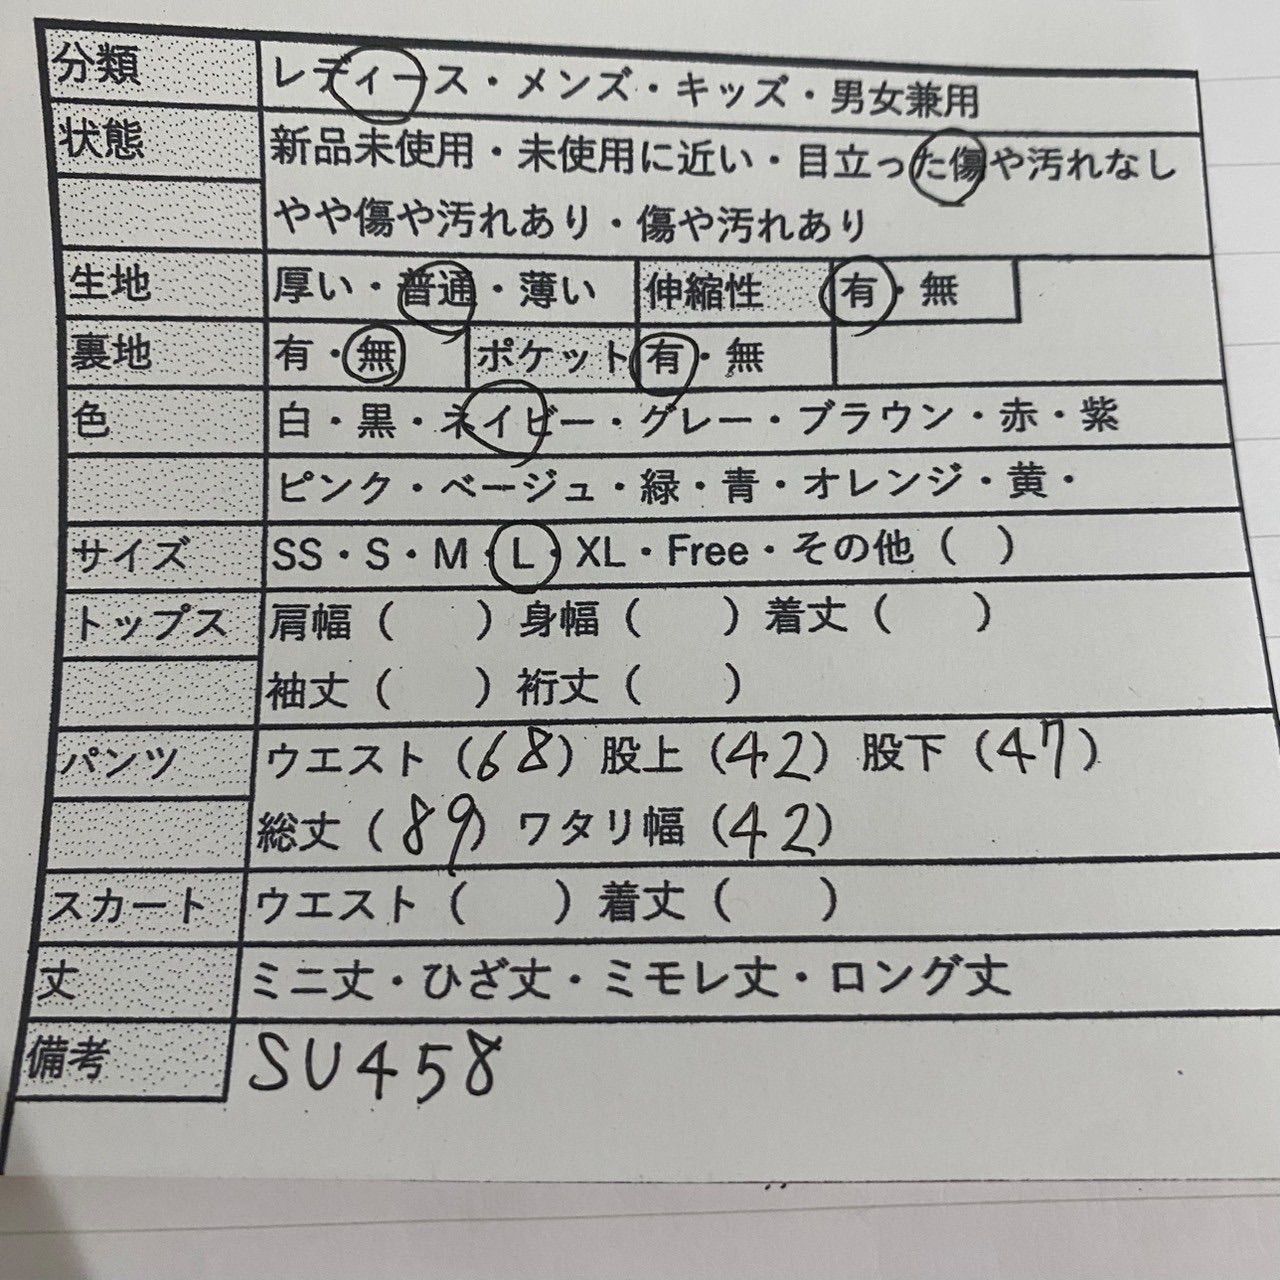 分類 レディース・メンズ・キッズ・男女兼用
状態 新品未使用・未使用に近い・目立った傷や汚れなし
やや傷や汚れあり・傷や汚れあり
生地 厚い・普通・薄い 伸縮性 有・無
裏地 有・無 ポケット 有・無
色 白・黒・ネイビー・グレー・ブラウン・赤・紫
ピンク・ベージュ・緑・青・オレンジ・黄・
サイズ SS・S・M・L・XL・Free・その他（ ）
トップス 肩幅（ ）身幅（ ）着丈（ ）
袖丈（ ）裄丈（ ）
パンツ ウエスト（68）股上（42）股下（47）
総丈（89）ワタリ幅（42）
スカート ウエスト（ ）着丈（ ）
丈 ミニ丈・ひざ丈・ミモレ丈・ロング丈
備考 SU458